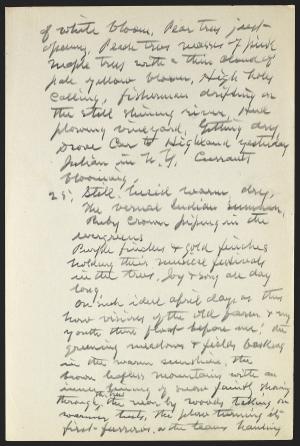 of white bloom, Pear trees just
opening, Peach trees masses of pink
maple trees with a thin cloud of
pale yellow bloom, High hole
Calling, fisherman drifting on
the still shining river, Hud
plowing vineyard, Getting dry,
Drove Car to Highland yesterday
Julian in N.Y. Currants
blooming.
25; Still lucid warm, dry,
The vernal Indian summer,
Ruby Crown piping in the
evergreens
Purple finches & gold finches
holding their musical festivals
in the trees, joy & song all day
long.
On such ideal April days as this
how visions of the old farm & my
youth there float before me! the
greening meadows & fields basking
in the warm sunshine, the
brown leafless mountains with an
inner lining of snow faintly showing
through the trees, the near by woods taking on
warmer tints, the plow turning its
first furrows, as the team